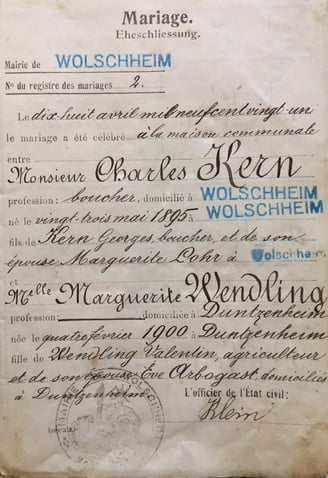 Mariage.
Eheschliessung.
Mairie de WOLSCHHEIM
No du registre des mariages 2.
Le dix huit avril mil neuf cent vingt-un
le mariage a été célébré à la maison communale
entre
Monsieur Charles Kern
profession: boucher, domicilié à WOLSCHHEIM
né le vingt trois mai 1895 à WOLSCHHEIM
fils de Kern Georges, boucher, et de son
épouse Marguerite Lohr à Wolschheim
et
Melle Marguerite Wendling
profession: domiciliée à Duntzenheim
née le quatre février 1900 à Duntzenheim
fille de Wendling Valentin, agriculteur
et de son épouse Eve Arbogast, domiciliés
à Duntzenheim
L'officier de l'État civil:
Klein
(sceau)